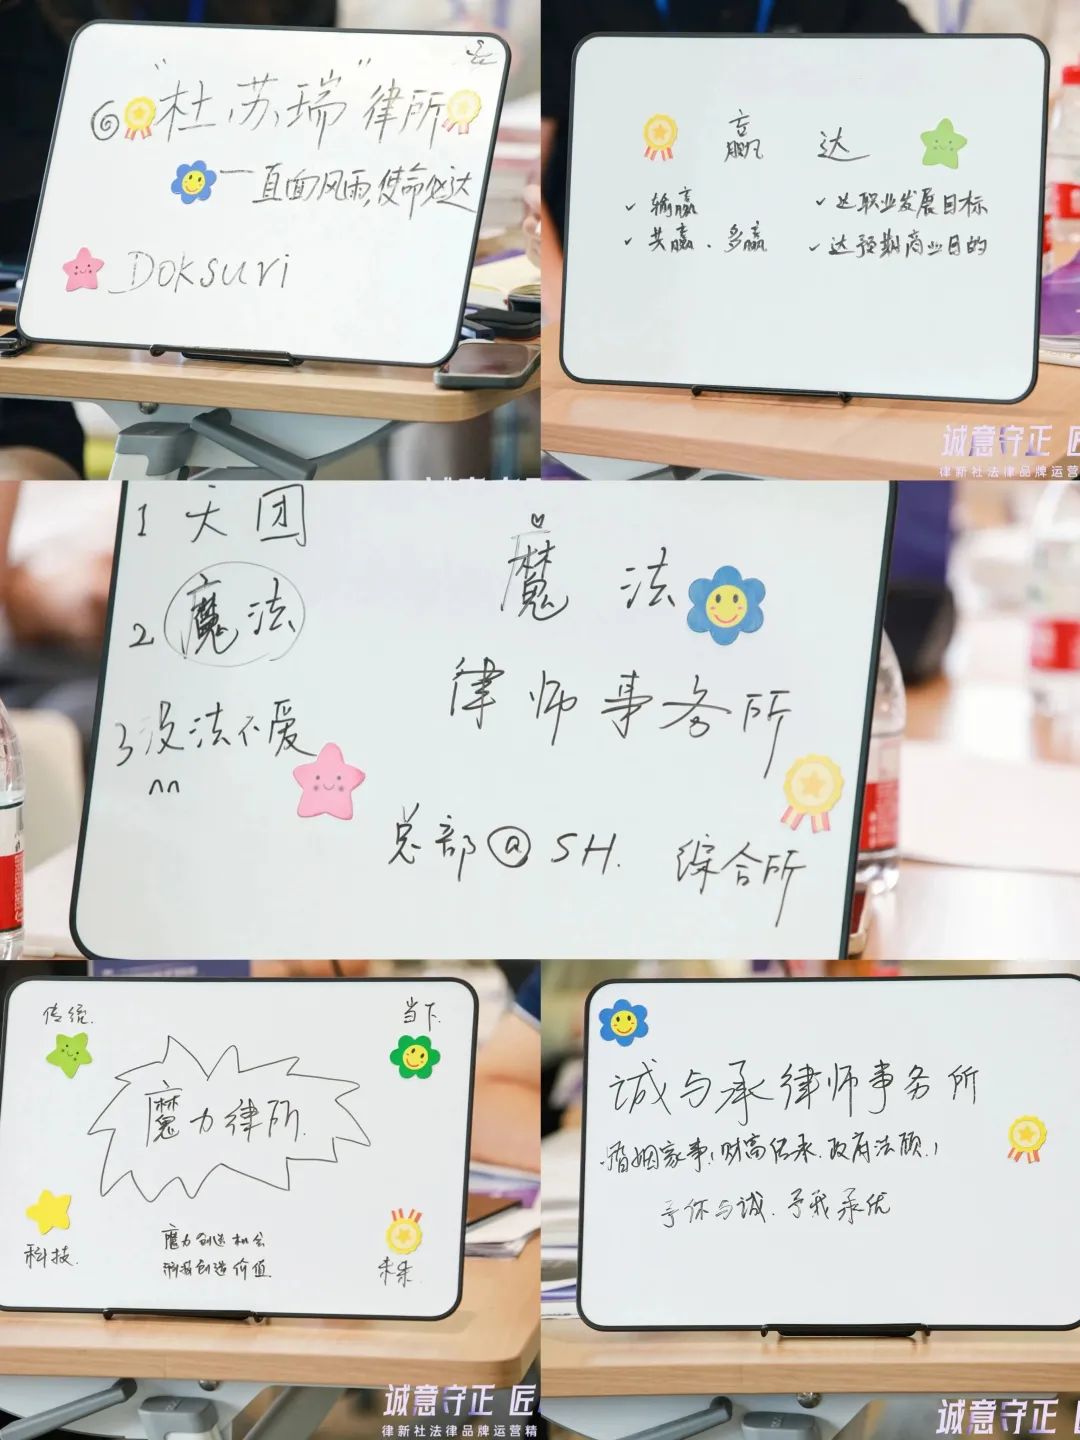 “杜苏瑞”律所
一直面风雨,使命必达
Doksuri
赢 达
✓ 输赢
✓ 共赢、多赢
✓ 达职业发展目标
✓ 达预期商业目的
诚意守正 匠
律新社法律品牌运营
1 天团
2 魔法
3 没法不爱
魔法
律师事务所
总部@SH. 综合所
传统.
当下.
魔力律所.
科技.
未来.
魔力创造机会
创造价值.
诚意守正 匠
律新社法律品牌运营精
诚与承律师事务所
婚姻家事!财富传承.政府法顾.)
予你与诚.予我承优
诚意守正 匠
律新社法律品牌运营